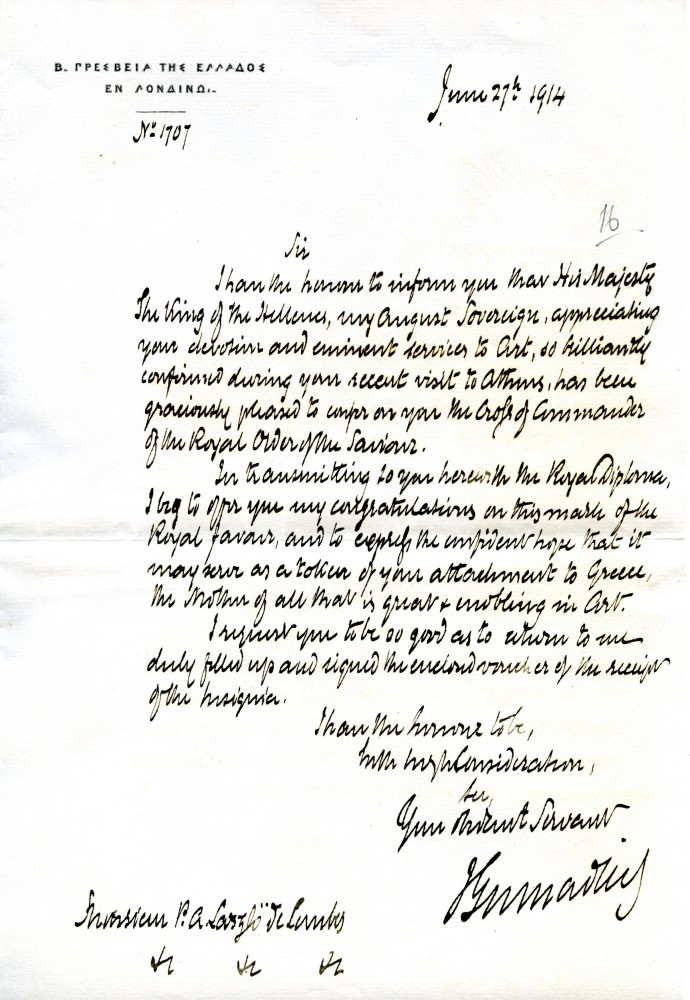 Β. ΠΡΕΣΒΕΙΑ ΤΗΣ ΕΛΛΑΔΟΣ
ΕΝ ΛΟΝΔΙΝΩ.
June 27th 1914
No 1707
16
Sir
I have the honour to inform you that His Majesty
The King of the Hellenes, my August Sovereign, appreciating
your devotion and eminent services to Art, so brilliantly
confirmed during your recent visit to Athens, has been
graciously pleased to confer on you the Cross of Commander
of the Royal Order of the Saviour.
In transmitting to you herewith the Royal Diploma,
I beg to offer you my congratulations on this mark of the
Royal favour, and to express the confident hope that it
may serve as a token of your attachment to Greece,
the Mother of all that is great & enobling in Art.
I request you to be so good as to return to me
duly filled up and signed the enclosed voucher of the receipt
of the Insignia.
I have the honour to be,
with high Consideration,
Sir,
Your obedient Servant
J Gennadius
Monsieur P. A. László de Lombos
&c &c &c